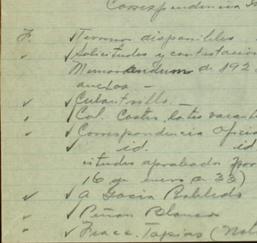 Correspondencia
F. √ Terrenos disponibles
√ √ Solicitudes y contestacion
Memorandum de 192
anexos. —
√ √ Culantrillo. —
√ √ Col. Castro, lotes vacante
√ √ Correspondencia Oficia
√ id. id
citudes aprobado por
16 de enero a 33)
√ √ A Garcia Robledo
√ √ Piñon Blanco
√ √ Fracc. Tapias (Not